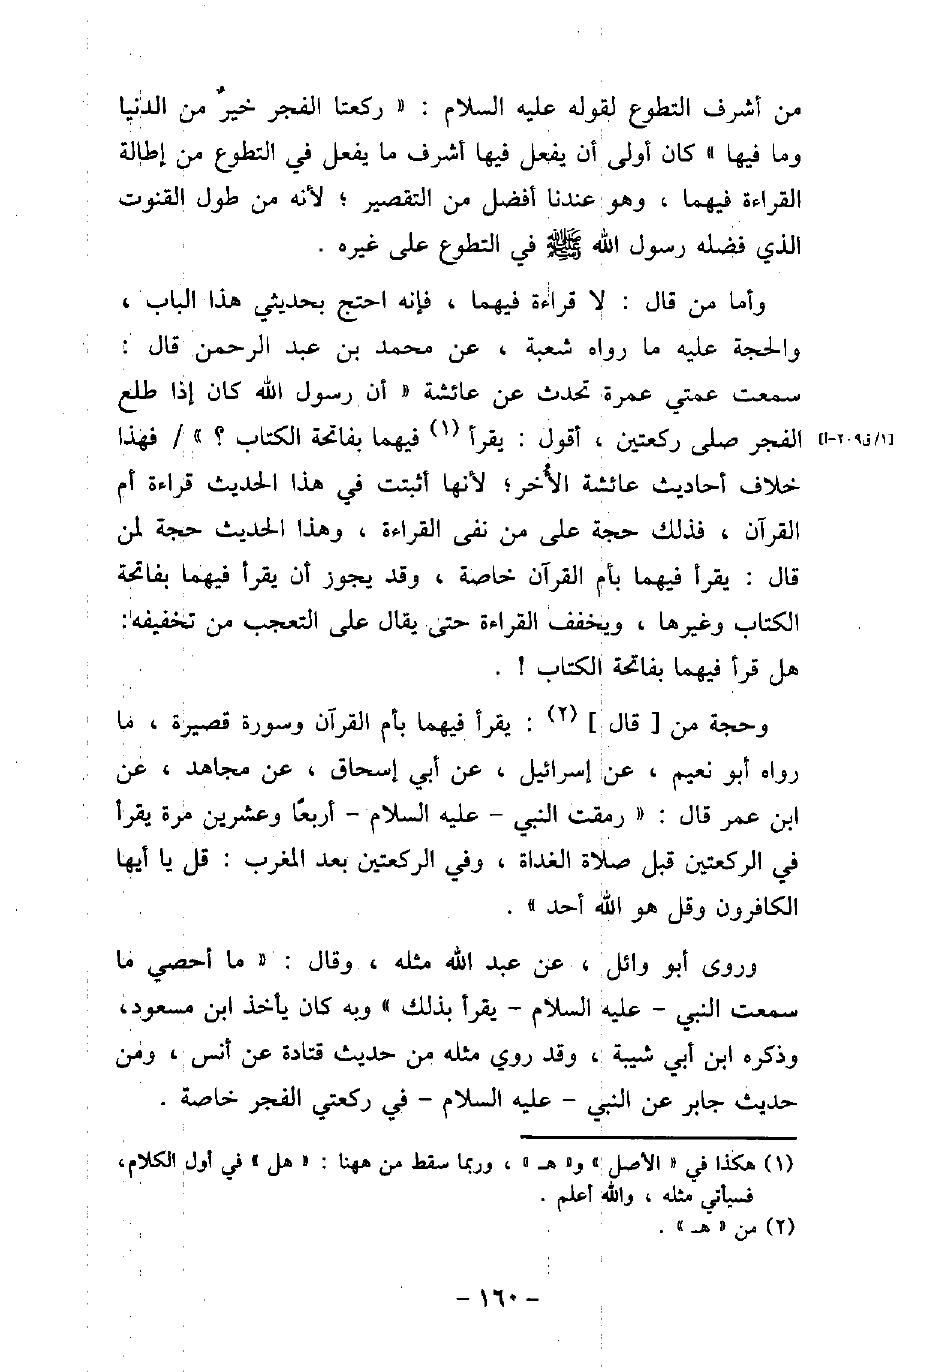 من أشرف التطوع لقوله عليه السلام : « ركعتا الفجر خيرٌ من الدنيا
وما فيها » كان أولى أن يفعل فيها أشرف ما يفعل في التطوع من إطالة
القراءة فيهما ، وهو عندنا أفضل من التقصير ؛ لأنه من طول القنوت
الذي فضله رسول الله ﷺ في التطوع على غيره .
وأما من قال : لا قراءة فيهما ، فإنه احتج بحديثي هذا الباب ،
والحجة عليه ما رواه شعبة ، عن محمد بن عبد الرحمن قال :
سمعت عمتي عمرة تحدث عن عائشة « أن رسول الله كان إذا طلع
الفجر صلى ركعتين ، أقول : يقرأ (١) فيهما بفاتحة الكتاب ؟ » / فهذا [١/ق٢٠٩-أ]
خلاف أحاديث عائشة الأُخر؛ لأنها أثبتت في هذا الحديث قراءة أم
القرآن ، فذلك حجة على من نفى القراءة ، وهذا الحديث حجة لمن
قال : يقرأ فيهما بأم القرآن خاصة ، وقد يجوز أن يقرأ فيهما بفاتحة
الكتاب وغيرها ، ويخفف القراءة حتى يقال على التعجب من تخفيفه:
هل قرأ فيهما بفاتحة الكتاب ! .
وحجة من [ قال ] (٢) : يقرأ فيهما بأم القرآن وسورة قصيرة ، ما
رواه أبو نعيم ، عن إسرائيل ، عن أبي إسحاق ، عن مجاهد ، عن
ابن عمر قال : « رمقت النبي – عليه السلام – أربعًا وعشرين مرة يقرأ
في الركعتين قبل صلاة الغداة ، وفي الركعتين بعد المغرب : قل يا أيها
الكافرون وقل هو الله أحد » .
وروى أبو وائل ، عن عبد الله مثله ، وقال : « ما أحصي ما
سمعت النبي – عليه السلام – يقرأ بذلك » وبه كان يأخذ ابن مسعود،
وذكره ابن أبي شيبة ، وقد روي مثله من حديث قتادة عن أنس ، ومن
حديث جابر عن النبي – عليه السلام – في ركعتي الفجر خاصة .
(١) هكذا في « الأصل » و« هـ » ، وربما سقط من ههنا : « هل » في أول الكلام،
فسيأتي مثله ، والله أعلم .
(٢) من « هـ » .
– ١٦٠ –